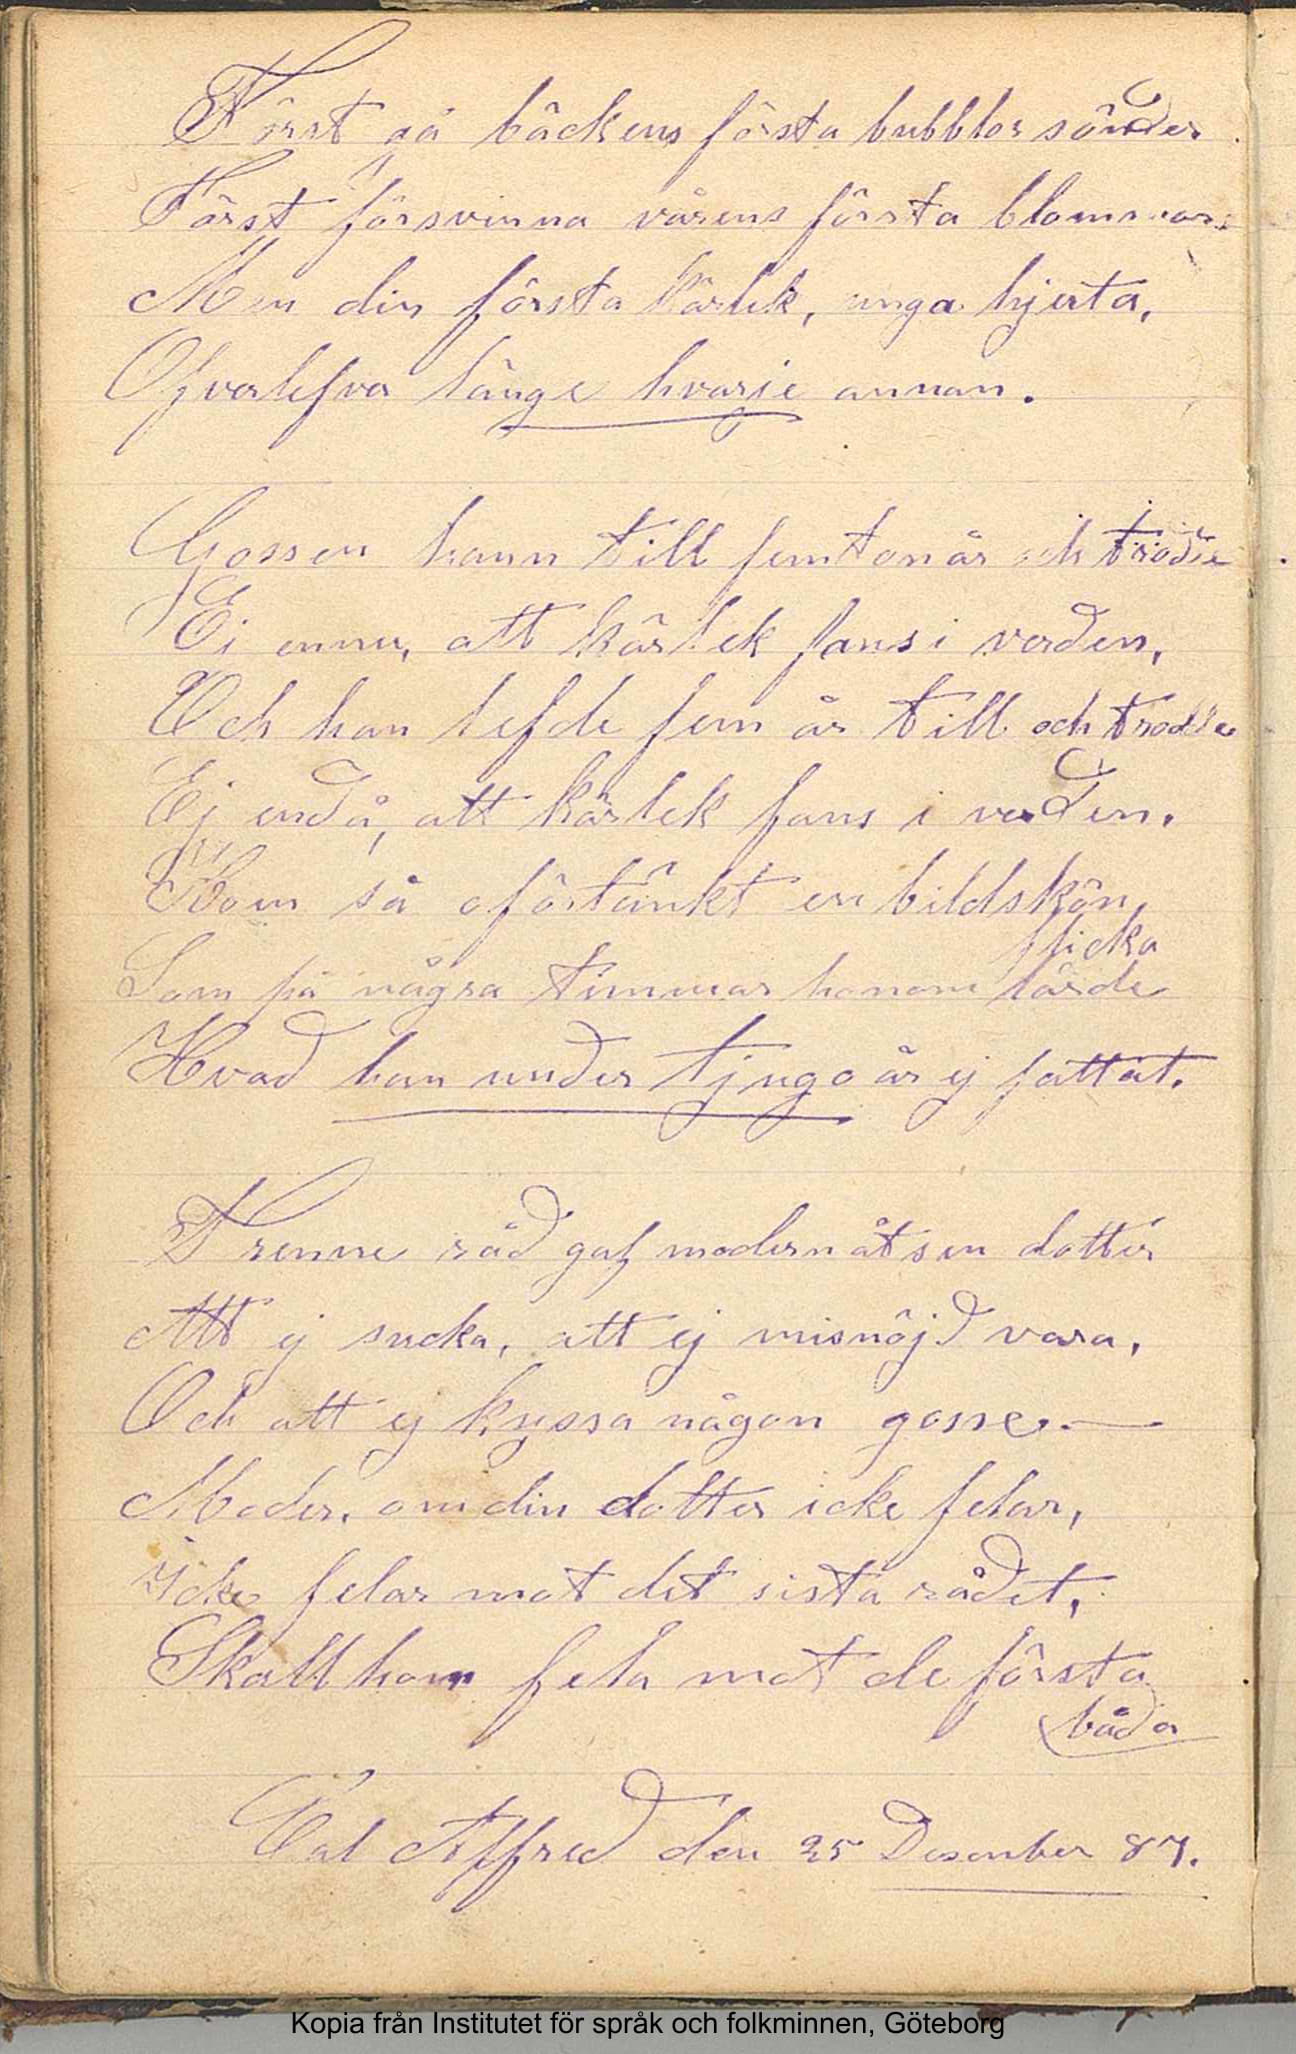 Först gå bäckens första bubblor sönder
Först försvinna vårens första blommor.
Men din första kärlek, unga hjerta,
Öfverlefver länge hvarje annan.
Gossen hann till femton år och trodde
Ej ennu, att kärlek fans i verden,
Och han lefde fem år till och trodde
Ej endå, att kärlek fans i verden.
Kom så oförtänkt en bildskön
flicka
Som på några timmar honom lärde
Hvad han under tjugo år ej fattat.
Trenne råd gaf modern åt sin dotter
Att ej sucka, att ej misnöjd vara,
Och att ej kyssa någon gosse. —
Moder, om din dotter icke felar,
Icke felar mot det sista rådet,
Skall hon fela mot de första
båda
Alfred den 25 Desember 87.
Kopia från Institutet för språk och folkminnen, Göteborg